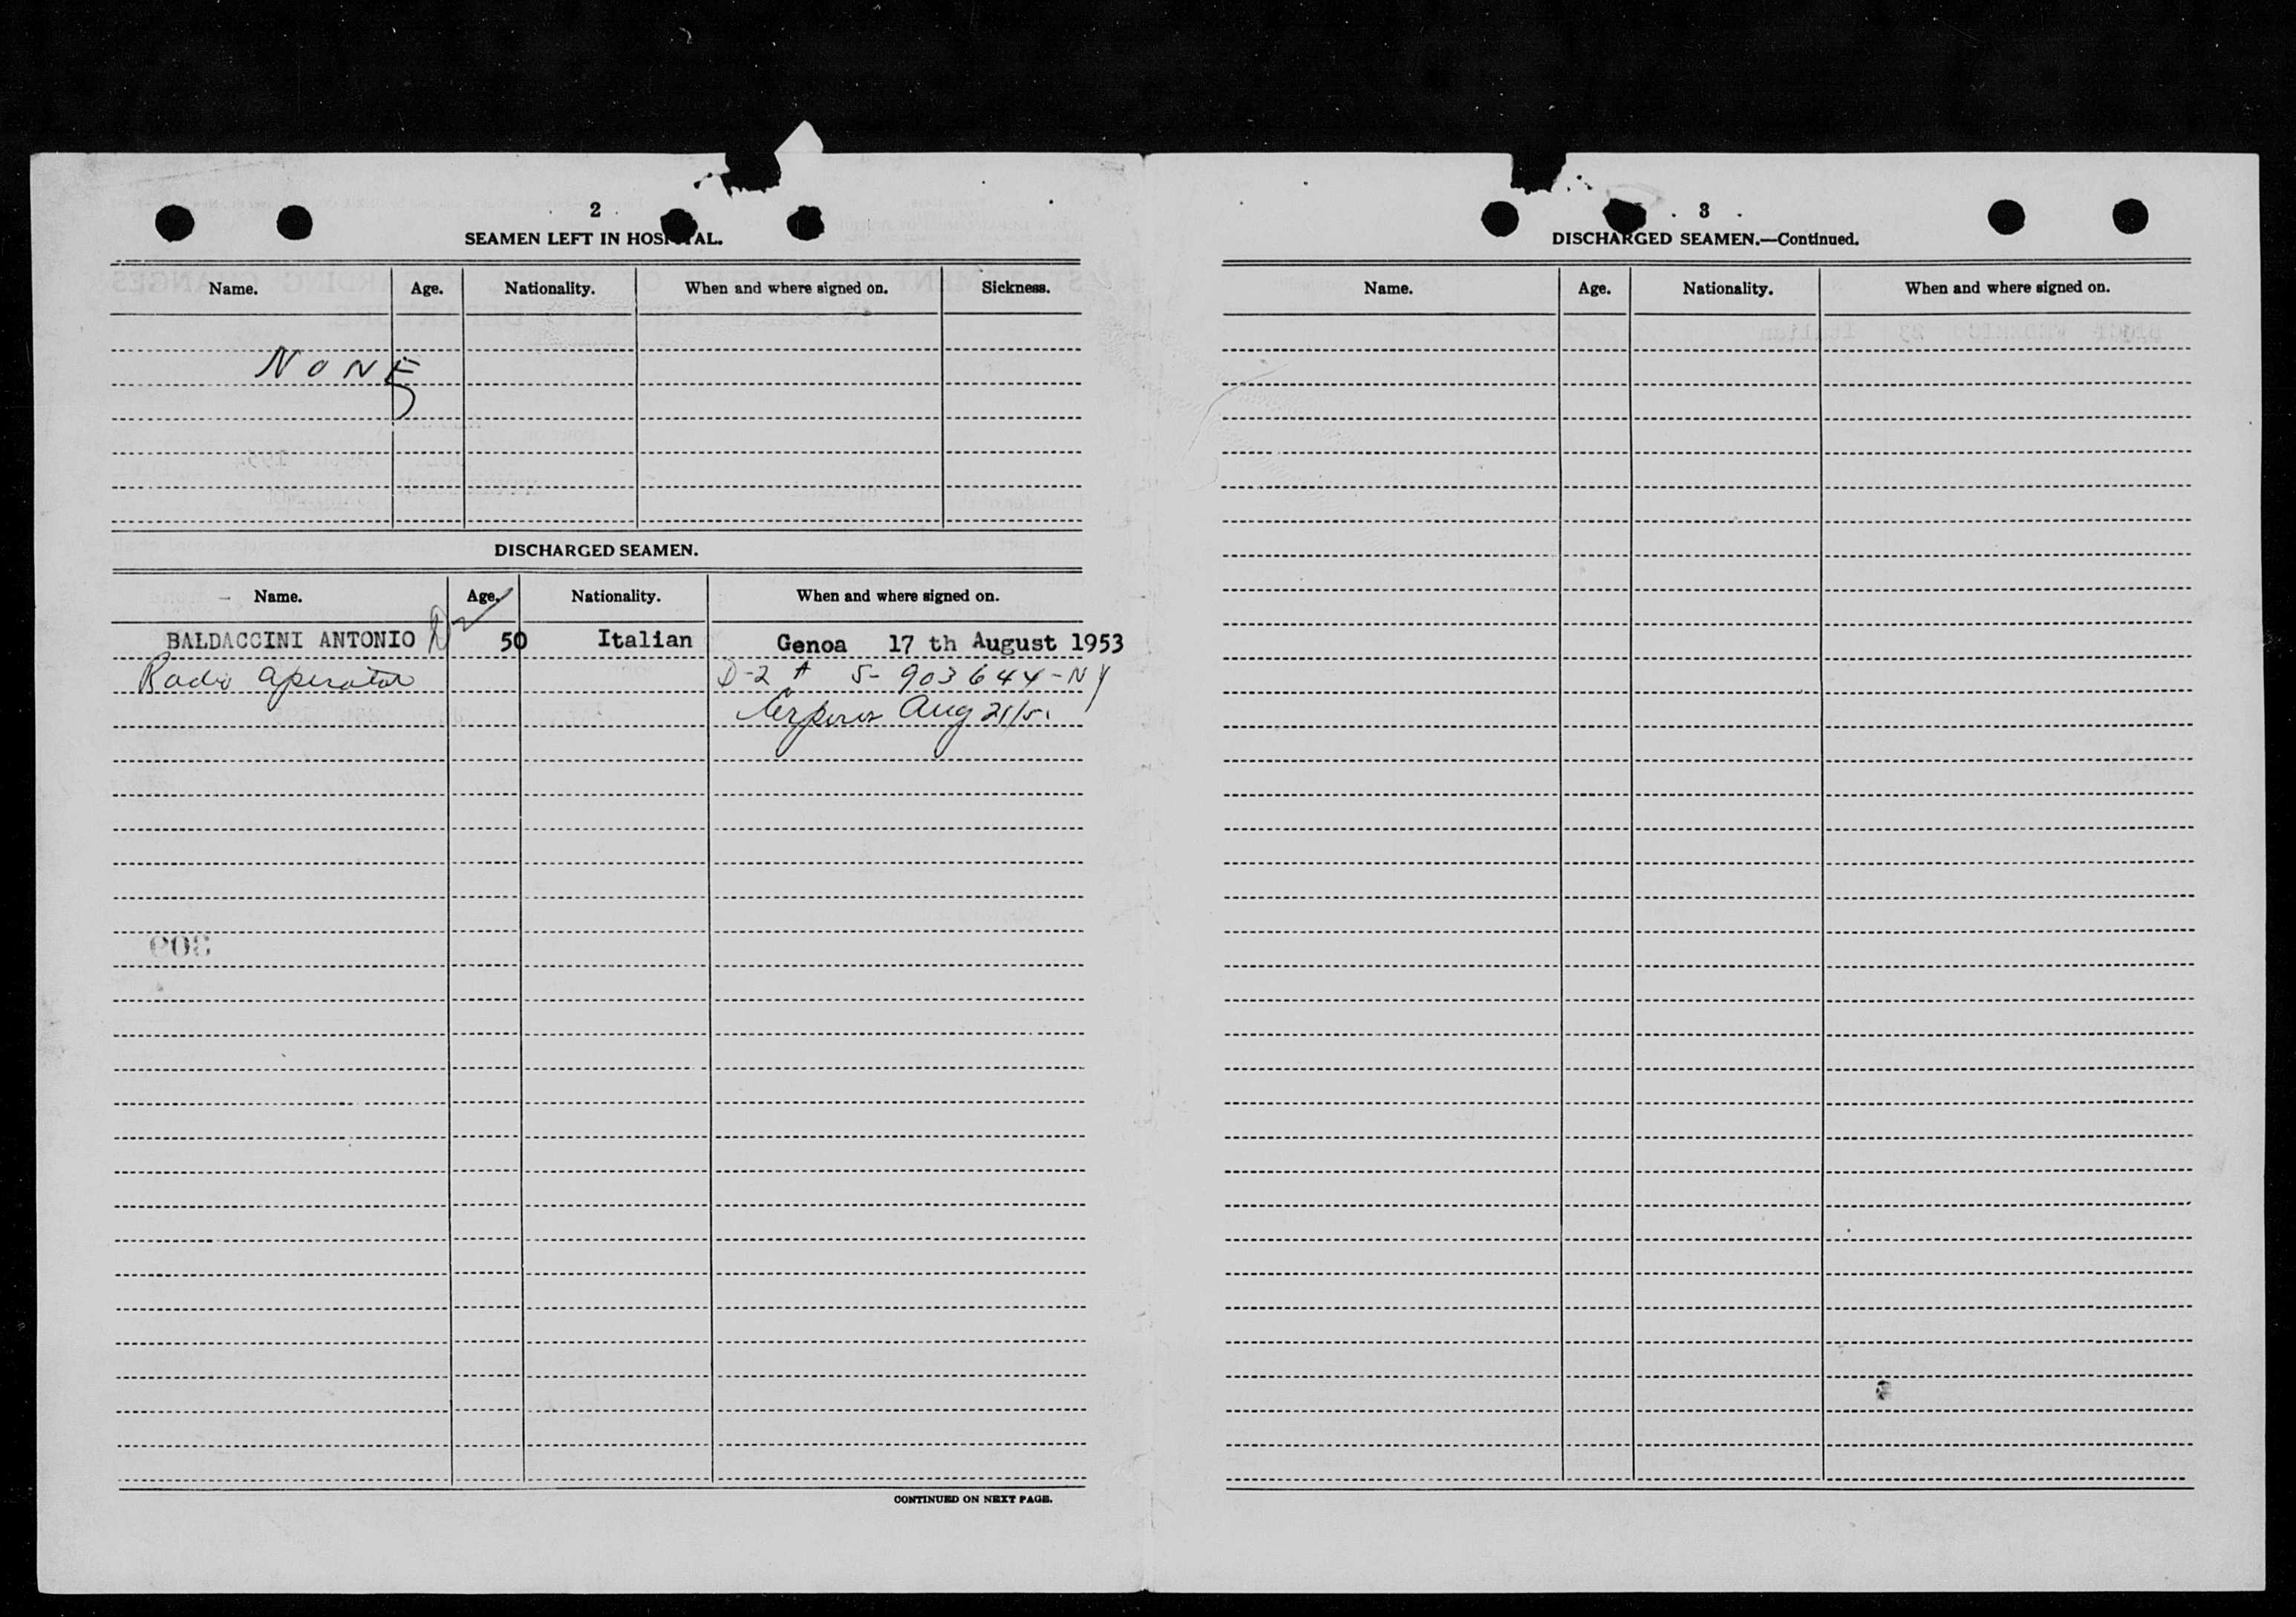 2
SEAMEN LEFT IN HOSPITAL.
Name. Age. Nationality. When and where signed on. Sickness.
NONE
DISCHARGED SEAMEN.
Name. Age. Nationality. When and where signed on.
BALDACCINI ANTONIO D 50 Italian Genoa 17 th August 1953
Radio Operator D-2 A S-903644-NY
Expires Aug 21/5
CONTINUED ON NEXT PAGE.
3
DISCHARGED SEAMEN.—Continued.
Name. Age. Nationality. When and where signed on.